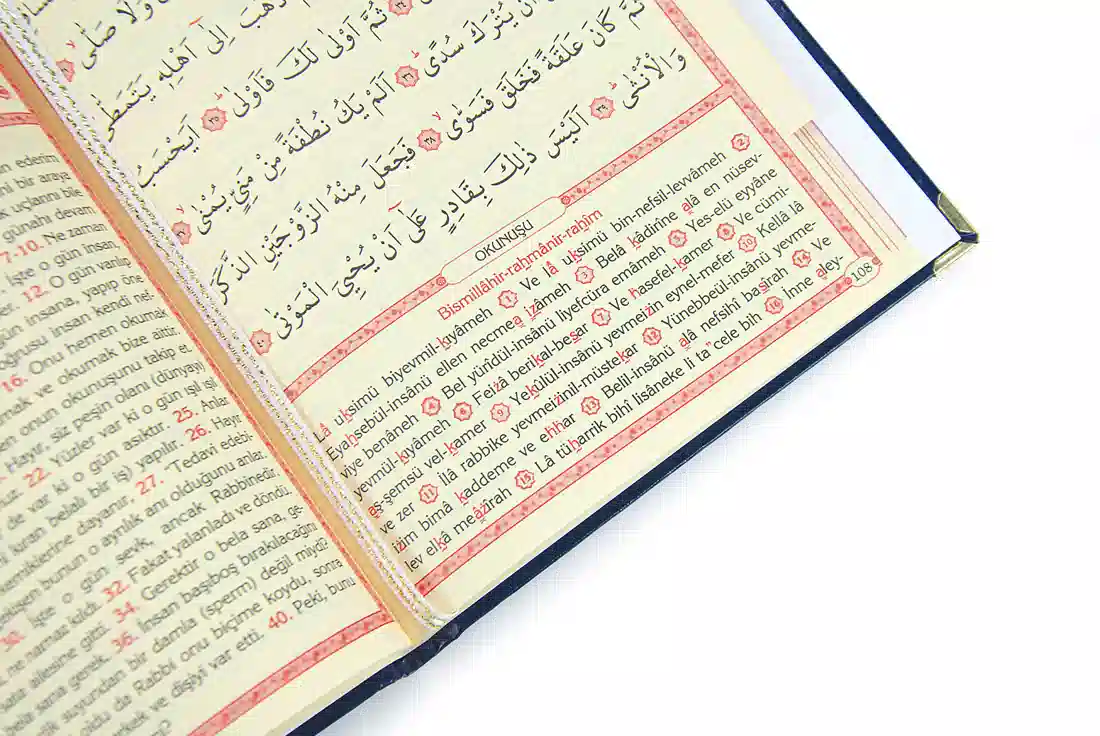 وَلَا صَلّٰى
ذَهَبَ اِلٰٓى اَهْلِه۪ يَتَمَطّٰى
ثُمَّ اَوْلٰى لَكَ فَاَوْلٰى ٣٥ اَيَحْسَبُ
اَنْ يُتْرَكَ سُدًى ٣٦ اَلَمْ يَكُ نُطْفَةً مِنْ مَنِيٍّ يُمْنٰى ٣٧
ثُمَّ كَانَ عَلَقَةً فَخَلَقَ فَسَوّٰى ٣٨ فَجَعَلَ مِنْهُ الزَّوْجَيْنِ الذَّكَرَ
وَالْاُنْثٰى ٣٩ اَلَيْسَ ذٰلِكَ بِقَادِرٍ عَلٰٓى اَنْ يُحْيِيَ الْمَوْتٰى ٤٠
OKUNUŞU
Bismillâhir-rahmânir-rahîm
Lâ uksimü biyevmil-kıyâmeh 1 Ve lâ uksimü bin-nefsil-levvâmeh 2
Eyahsebül-insânü ellen necmea ızâmeh 3 Belâ kâdirîne alâ en nüsev-
viye benâneh 4 Bel yürîdül-insânü liyefcüra emâmeh 5 Yes-elü eyyâne
yevmül-kıyâmeh 6 Feizâ berikal-besar 7 Ve hasefel-kamer 8 Ve cümi-
aş-şemsü vel-kamer 9 Yekûlül-insânü yevmeizin eynel-mefer 10 Kellâ lâ
ve zer 11 İlâ rabbike yevmeizinil-müstekar 12 Yünebbeül-insânü yevme-
izim bimâ kaddeme ve ehhar 13 Belil-insânü alâ nefsihî basîrah 14 Ve
lev elkâ meâzîrah 15 Lâ tüharrik bihî lisâneke li ta"cele bih 16 İnne aley-
108
ederim
bir araya
uçlarını bile
günahı devam
7-10. Ne zaman
İşte o gün insan,
12. O gün varılıp
gün insana, yapıp öne
doğrusu insan kendi nef-
16. Onu hemen okumak
ve okumak bize aittir.
onun okunuşunu takip et.
Hayır! Siz peşin olanı (dünyayı)
22. Yüzler var ki o gün ışıl ışıl
de var ki o gün asıktır. 25. Anlar
kıran belalı bir iş) yapılır. 26. Hayır,
dayanır, 27. "Tedavi edebi-
bunun o ayrılık anı olduğunu anlar.
İşte o gün sevk, ancak Rabbinedir.
ne namaz kıldı. 32. Fakat yalanladı ve döndü.
ailesine gitti. 34. Gerektir o bela sana, ge-
bela sana gerek. 36. İnsan başıboş bırakılacağını
suyundan bir damla (sperm) değil miydi?
oldu da Rabbi onu biçime koydu, sonra
erkek ve dişiyi var etti. 40. Peki, bunu